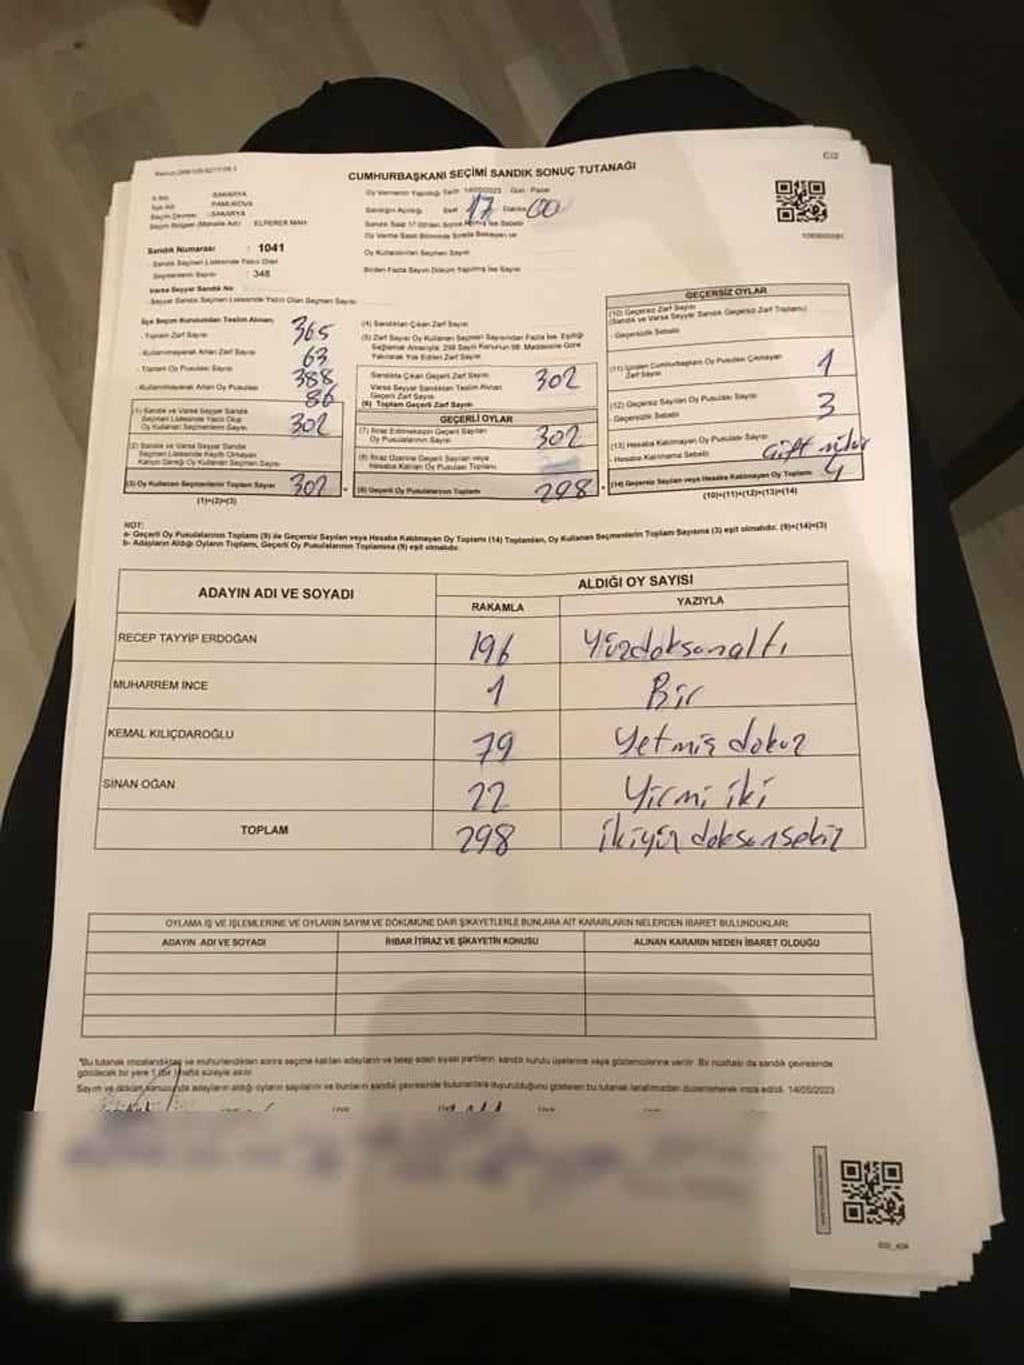 C/2
CUMHURBAŞKANI SEÇİMİ SANDIK SONUÇ TUTANAĞI
İl Adı : SAKARYA
İlçe Adı : PAMUKOVA
Seçim Çevresi : SAKARYA
Seçim Bölgesi (Mahalle Adı) : ELPEREK MAH.
Sandık Numarası : 1041
- Sandık Seçmen Listesinde Yazılı Olan
Seçmenlerin Sayısı : 348
Varsa Seyyar Sandık No
- Seyyar Sandık Seçmen Listesinde Yazılı Olan Seçmen Sayısı
Oy Vermenin Yapıldığı Tarih 14/05/2023 Gün : Pazar
Sandığın Açıldığı Saat 17 Dakika 00
Oy Verme Saati Bitiminde Sırada Bekleyen ve
Oy Kullandırılan Seçmen Sayısı
Birden Fazla Sayım Döküm Yapılma İse Sayısı
İlçe Seçim Kurulundan Teslim Alınan;
- Toplam Zarf Sayısı 365
- Kullanılmayarak Artan Zarf Sayısı 63
- Toplam Oy Pusulası Sayısı 388
- Kullanılmayarak Artan Oy Pusulası 86
(1) Sandık ve Varsa Seyyar Sandık
Seçmen Listesinde Yazılı Olup
Oy Kullanan Seçmenlerin Sayısı 302
(2) Sandık ve Varsa Seyyar Sandık
Seçmen Listesinde Kayıtlı Olmayan
Kanun Gereği Oy Kullanan Seçmen Sayısı
(3) Oy Kullanan Seçmenlerin Toplam Sayısı 302
(1)+(2)=(3)
(4) Sandıktan Çıkan Zarf Sayısı
(5) Zarf Sayısı Oy Kullanan Seçmen Sayısından Fazla İse, Eşitliği
Sağlamak Amacıyla; 298 Sayılı Kanunun 98. Maddesine Göre
Yakılarak Yok Edilen Zarf Sayısı
Sandıkta Çıkan Geçerli Zarf Sayısı 302
Varsa Seyyar Sandıktan Teslim Alınan
Geçerli Zarf Sayısı
(6) Toplam Geçerli Zarf Sayısı
GEÇERLİ OYLAR
(7) İtiraz Edilmeksizin Geçerli Sayılan
Oy Pusulalarının Sayısı 302
(8) İtiraz Üzerine Geçerli Sayılan veya
Hesaba Katılan Oy Pusulası Toplamı
(9) Geçerli Oy Pusulalarının Toplamı 298
GEÇERSİZ OYLAR
(10) Geçersiz Zarf Sayısı
(Sandık ve Varsa Seyyar Sandık Geçersiz Zarf Toplamı)
- Geçersizlik Sebebi
(11) İçinden Cumhurbaşkanı Oy Pusulası Çıkmayan
Zarf Sayısı 1
(12) Geçersiz Sayılan Oy Pusulası Sayısı 3
- Geçersizlik Sebebi
(13) Hesaba Katılmayan Oy Pusulası Sayısı
- Hesaba Katılmama Sebebi Çift
(14) Geçersiz Sayılan veya Hesaba Katılmayan Oy Toplamı 4
(10)+(11)+(12)+(13)=(14)
NOT:
a- Geçerli Oy Pusulalarının Toplamı (9) ile Geçersiz Sayılan veya Hesaba Katılmayan Oy Toplamı (14) Toplamları, Oy Kullanan Seçmenlerin Toplam Sayısına (3) eşit olmalıdır. (9)+(14)=(3)
b- Adayların Aldığı Oyların Toplamı, Geçerli Oy Pusulalarının Toplamına (9) eşit olmalıdır.
ADAYIN ADI VE SOYADI ALDIĞI OY SAYISI
RAKAMLA YAZIYLA
RECEP TAYYİP ERDOĞAN 196 Yüzdoksanaltı
MUHARREM İNCE 1 Bir
KEMAL KILIÇDAROĞLU 79 Yetmiş dokuz
SİNAN OĞAN 22 Yirmi iki
TOPLAM 298 İkiyüz doksansekiz
OYLAMA İŞ VE İŞLEMLERİNE VE OYLARIN SAYIM VE DÖKÜMÜNE DAİR ŞİKAYETLERLE BUNLARA AİT KARARLARIN NELERDEN İBARET BULUNDUKLARI
ADAYIN ADI VE SOYADI İHBAR İTİRAZ VE ŞİKAYETİN KONUSU ALINAN KARARIN NEDEN İBARET OLDUĞU
"Bu tutanak imzalandıktan ve mühürlendikten sonra seçime katılan adayların ve talep eden siyasi partilerin sandık kurulu üyelerine veya gözlemcilerine verilir. Bir nüshası da sandık çevresinde
görülecek bir yere 1 (bir) hafta süreyle asılır.
Sayım ve döküm sonucunda adayların aldığı oyların sayılarını ve bunların sandık çevresinde bulunanlara duyurulduğunu gösteren bu tutanak tarafımızdan düzenlenerek imza edildi. 14/05/2023